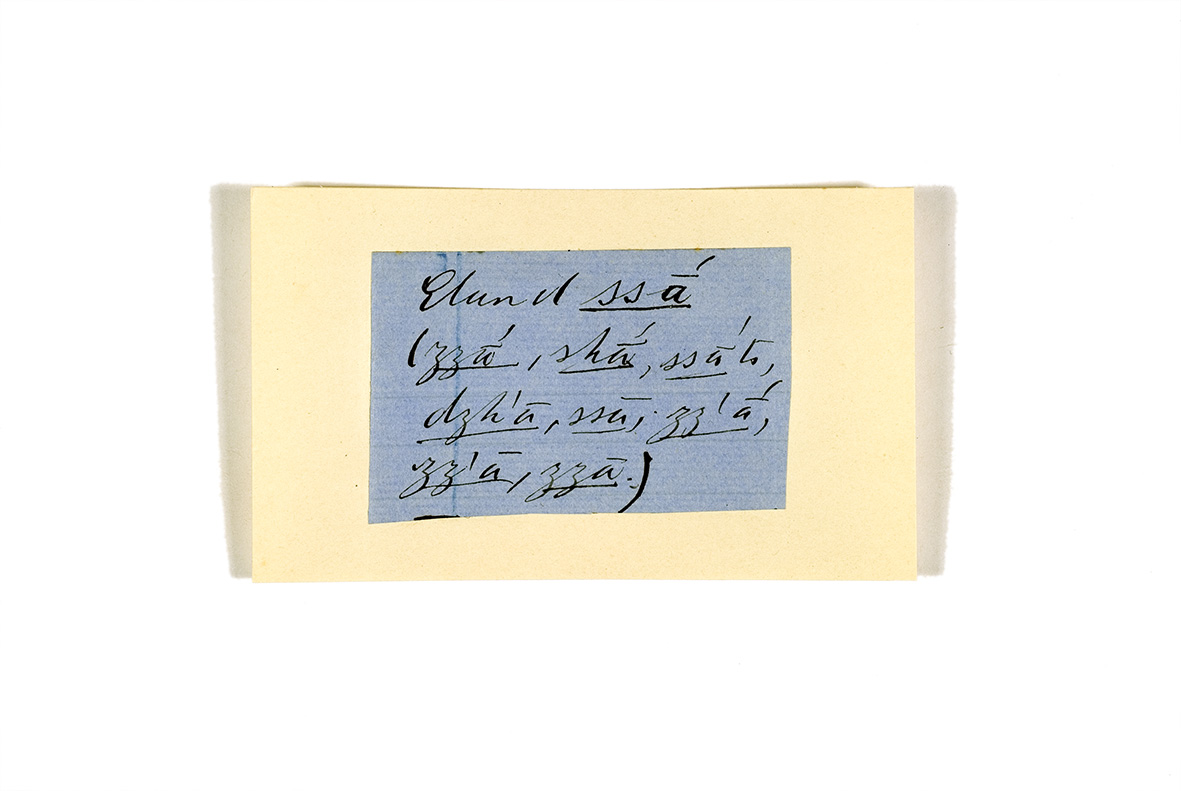 Eland ssā́
(zzā́, shā́, ssā́ts,
dzh'ā, ssā, zz'ā́,
zz'ā, zzā.)